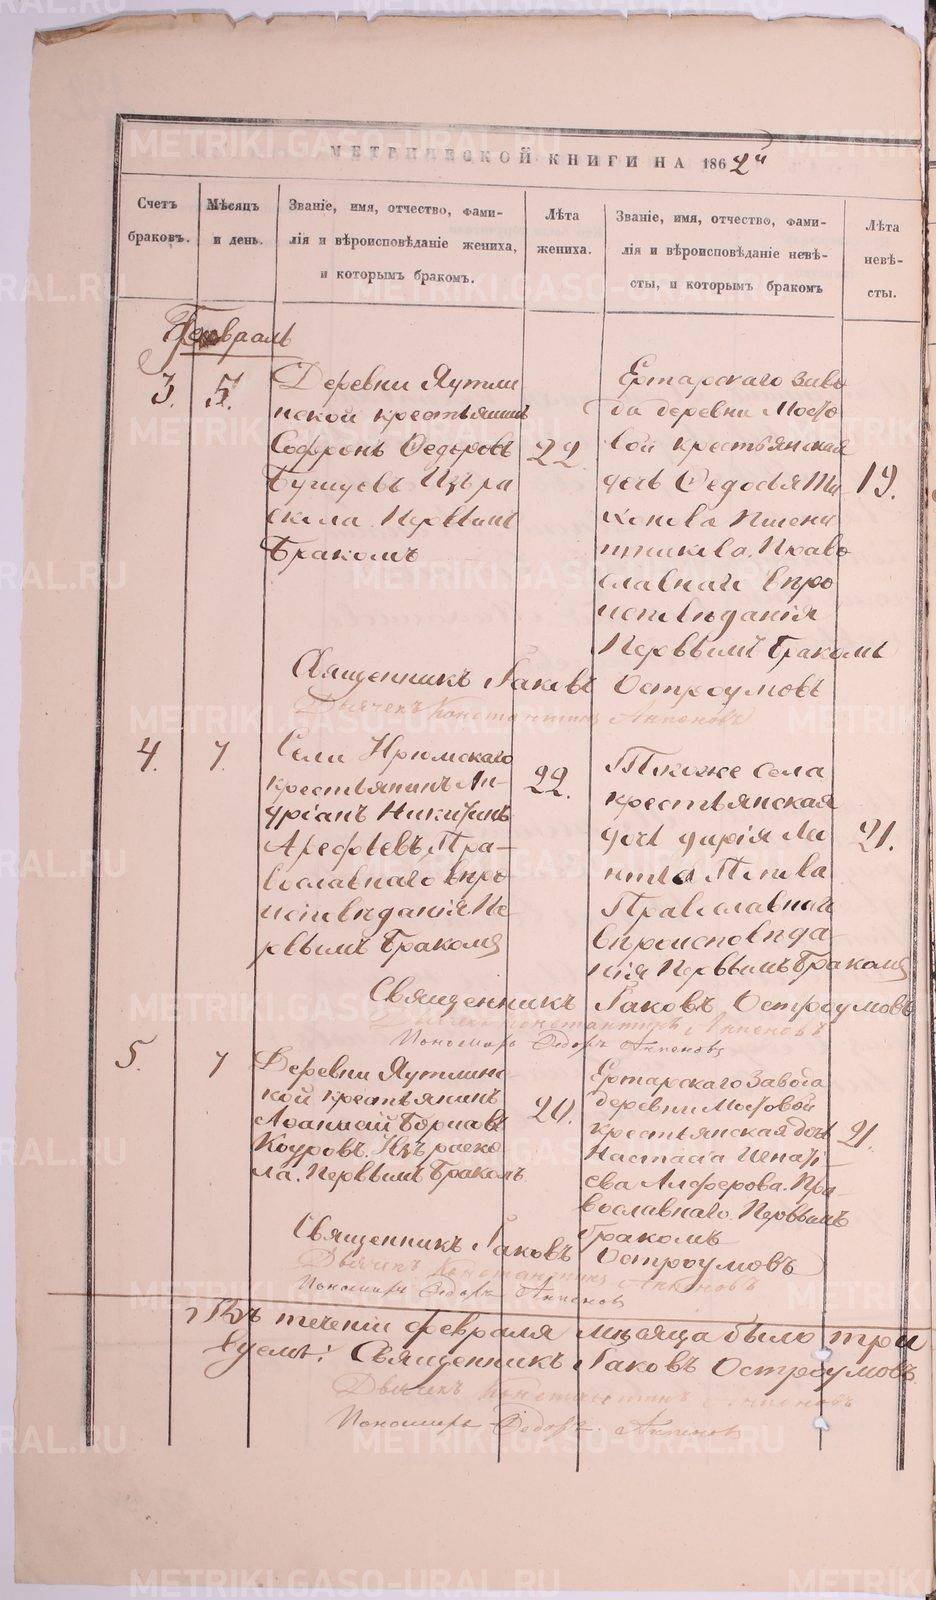 МЕТРИЧЕСКОЙ КНИГИ НА 1862й
Счетъ браковъ.
Мѣсяцъ и день.
Званіе, имя, отчество, фами-
лія и вѣроисповѣданіе жениха,
и которымъ бракомъ.
Лѣта
жениха.
Званіе, имя, отчество, фами-
лія и вѣроисповѣданіе невѣ-
сты, и которымъ бракомъ
Лѣта
невѣ-
сты.
Февраль
3. 5.
Деревни Яутли
нской крестьянинъ
Софронъ Ѳедоровъ
Изъ ра
скола Первымъ
Бракомъ
22
Ертарскаго заво
да деревни Мосто
вой крестьянская
дочь Ѳедосья Ти
хонова Пшени
шникова. Право
славнаго впро
исповѣданія
Первымъ Бракомъ
19.
Священникъ Іаковъ Остроумовъ
Дьячекъ Константинъ
4. 7.
Села Юрмскаго
крестьянинъ Ан-
дріанъ Никитинъ
Арефьевъ Пра-
вославнаго впро
исповѣданія Пе
рвымъ Бракомъ
22.
Токоже села
крестьянская
дочь Дарія
Попова
Православнаго
впроисповѣда-
нія Первымъ Бракомъ
21.
Священникъ Іаковъ Остроумовъ
Дьячекъ Константинъ
Пономарь Ѳедоръ
5. 7
Деревни Яутлинс
кой крестьянинъ
Аѳанасій Борисовъ
Изъ раско
ла. Первымъ Бракомъ
20.
Ертарскаго Завода
деревни Мостовой
крестьянская дочь
Настасія Игнать
ева Алферова. Пра
вославнаго. Первымъ
Бракомъ
21.
Священникъ Іаковъ Остроумовъ
Дьячекъ Константинъ
Пономарь Ѳедоръ
Въ теченіи февраля мѣсяца было три
Священникъ Іаковъ Остроумовъ.
Дьячекъ Константинъ
Пономарь Ѳедоръ
METRIKI.GASO-URAL.RU